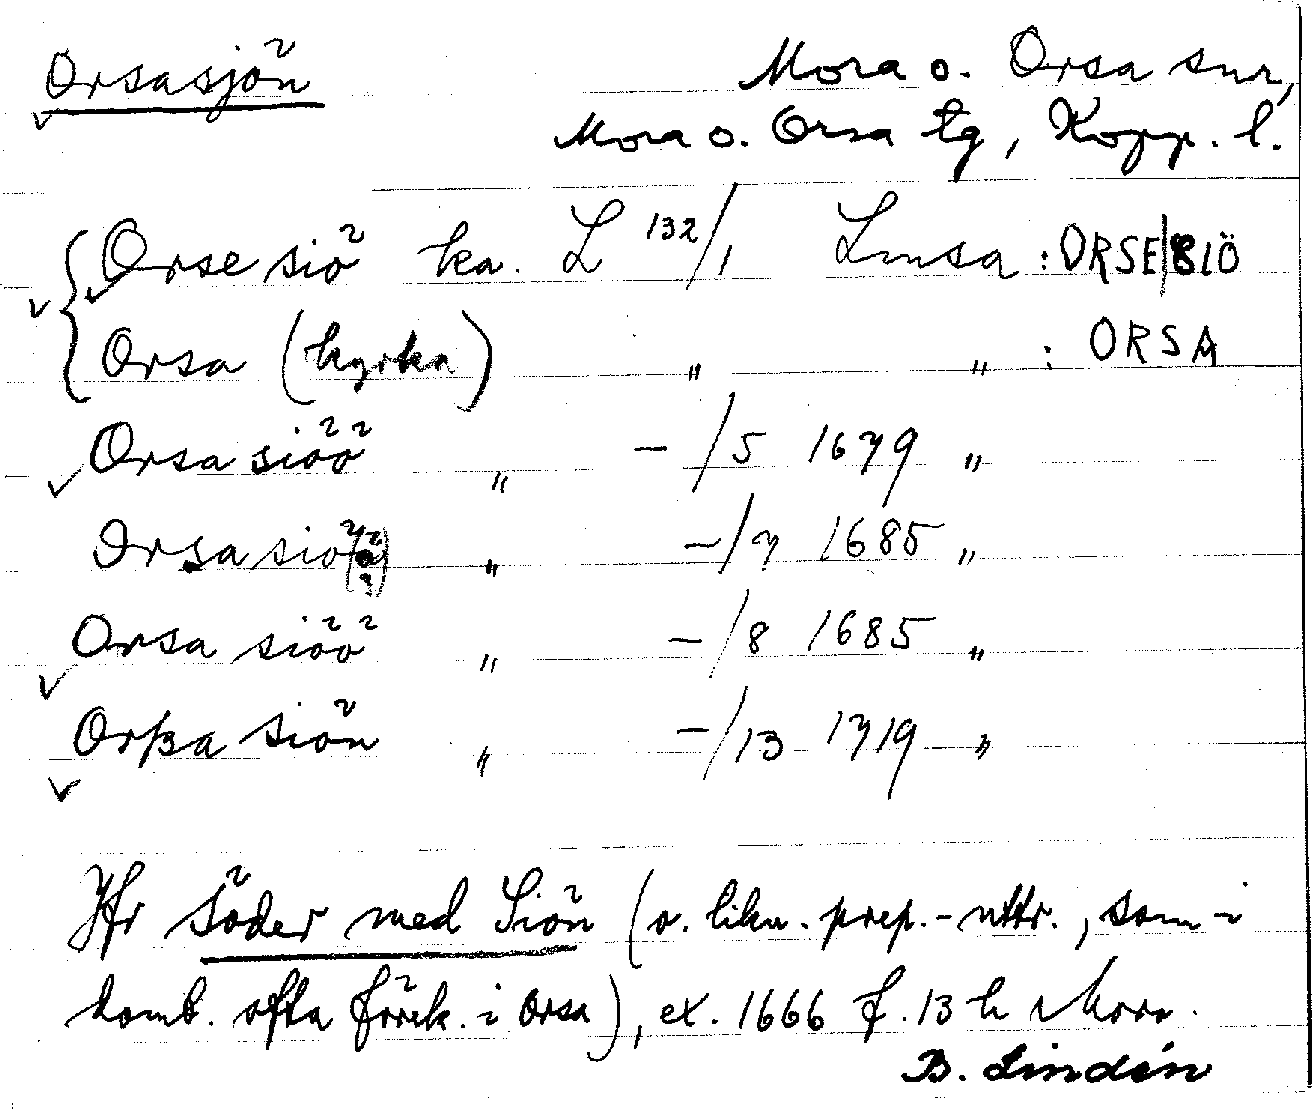 Orsasjön Mora o. Orsa snr,
Mora o. Orsa tg, Kopp. l.
Orse siö ka. L 132/1 Lmsa : ORSE|SIÖ
Orsa (kyrka) " " : ORSA
Orsa siöö " -/5 1679 "
Orsa siö(ö?) " -/7 1685 "
Orsa siöö " -/8 1685 "
Orßa Siön " -/13 1719 "
Jfr Söder med Siön (o. likn. prep.-uttr., som i
komb. ofta förek. i Orsa), ex. 1666 f. 13 h Mora.
B. Lindén